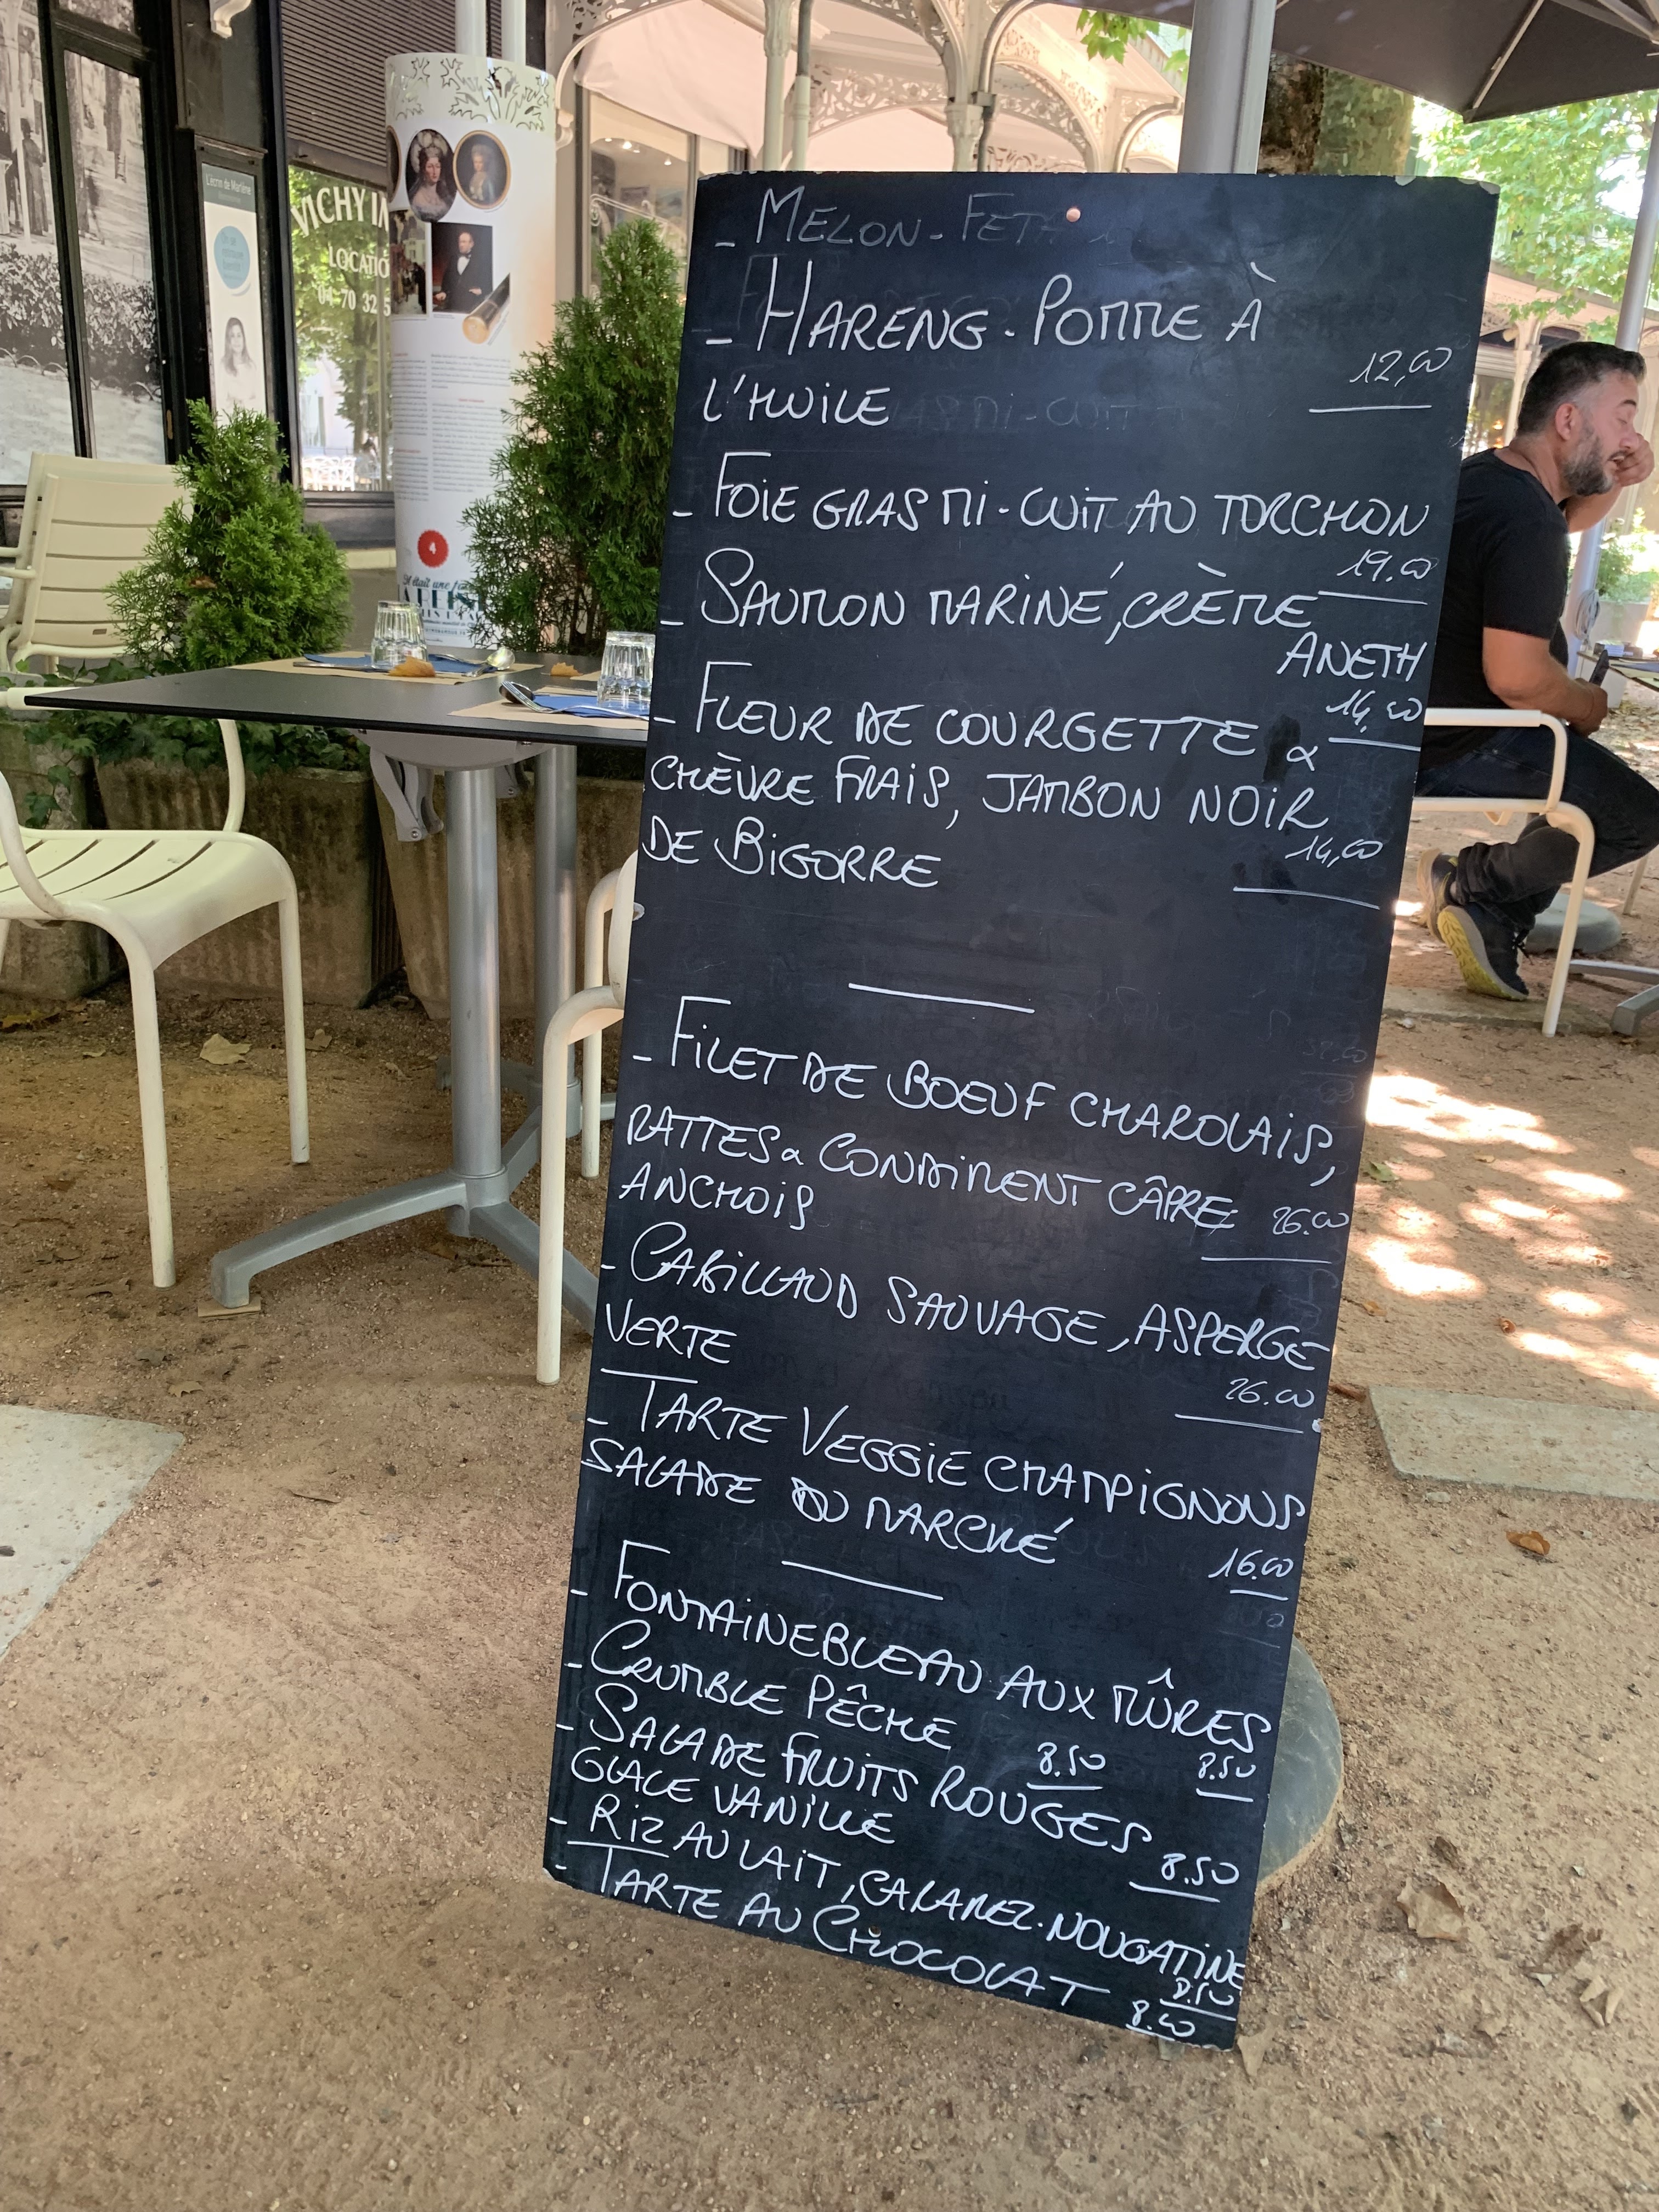 L'écrin de Marlène
VICHY
LOCATIO
04 70 32 5
4
Il était une
- MELON - FETA
- HARENG - POMME À
L'HUILE
12,00
- FOIE GRAS MI-CUIT AU TORCHON
19.00
- SAUMON MARINÉ, CRÈME
ANETH
14,00
- FLEUR DE COURGETTE &
CHÈVRE FRAIS, JAMBON NOIR
DE BIGORRE
14,00
- FILET DE BOEUF CHAROLAIS,
RATTES & CONDIMENT CÂPRE
26.00
ANCHOIS
- CABILLAUD SAUVAGE, ASPERGE
VERTE
26.00
- TARTE VEGGIE CHAMPIGNONS
SALADE DU MARCHÉ
16.00
- FONTAINEBLEAU AUX MÛRES
8.50
- CRUMBLE PÊCHE 8.50
- SALADE FRUITS ROUGES
GLACE VANILLE
8.50
- RIZ AU LAIT, CARAMEL-NOUGATINE
8.50
- TARTE AU CHOCOLAT